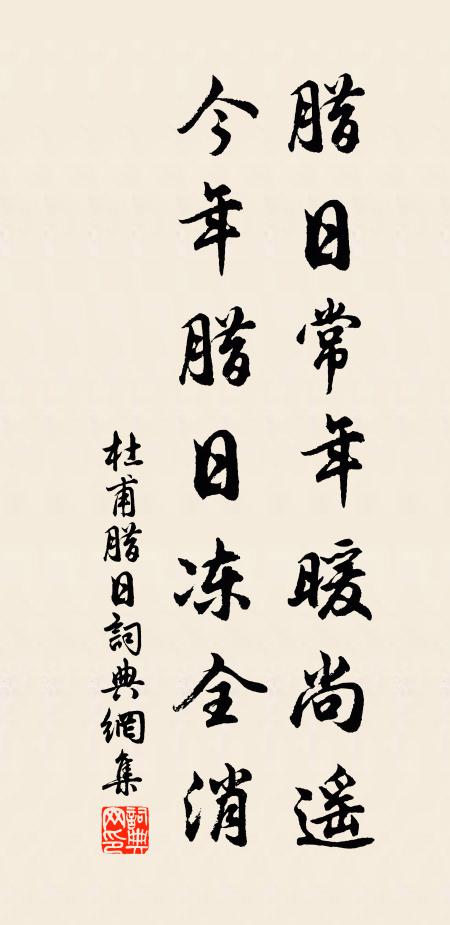 腊日常年暖尚遥
今年腊日冻全消
杜甫腊日詞典網集
詞典
网印